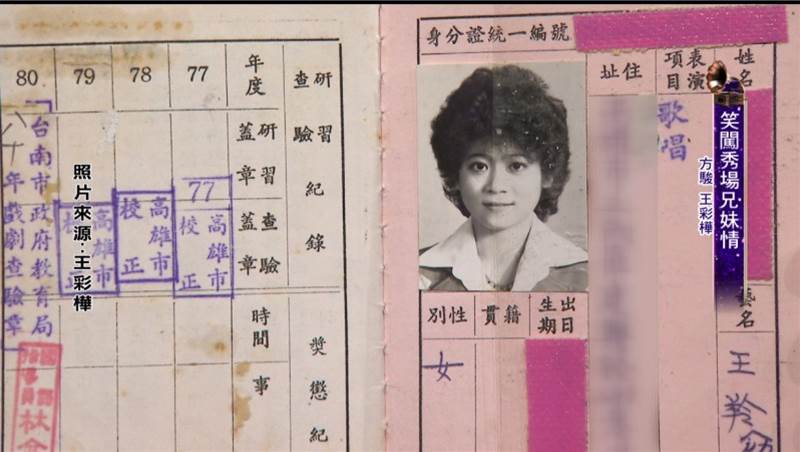 笑闖秀場兄妹情
方駿 王彩樺
照片來源：王彩樺
身分證統一編號
姓名
表演
項目
歌唱
住址
藝名
王羚
出生
日期
籍貫
性別
女
研習
查驗
紀錄
年度
77
78
79
80
研習
蓋章
查驗
蓋章
77
高雄市
校正
高雄市
校正
高雄市
校正
台南市政府教育局
八十年戲劇查驗章
獎懲紀
時間
事
林